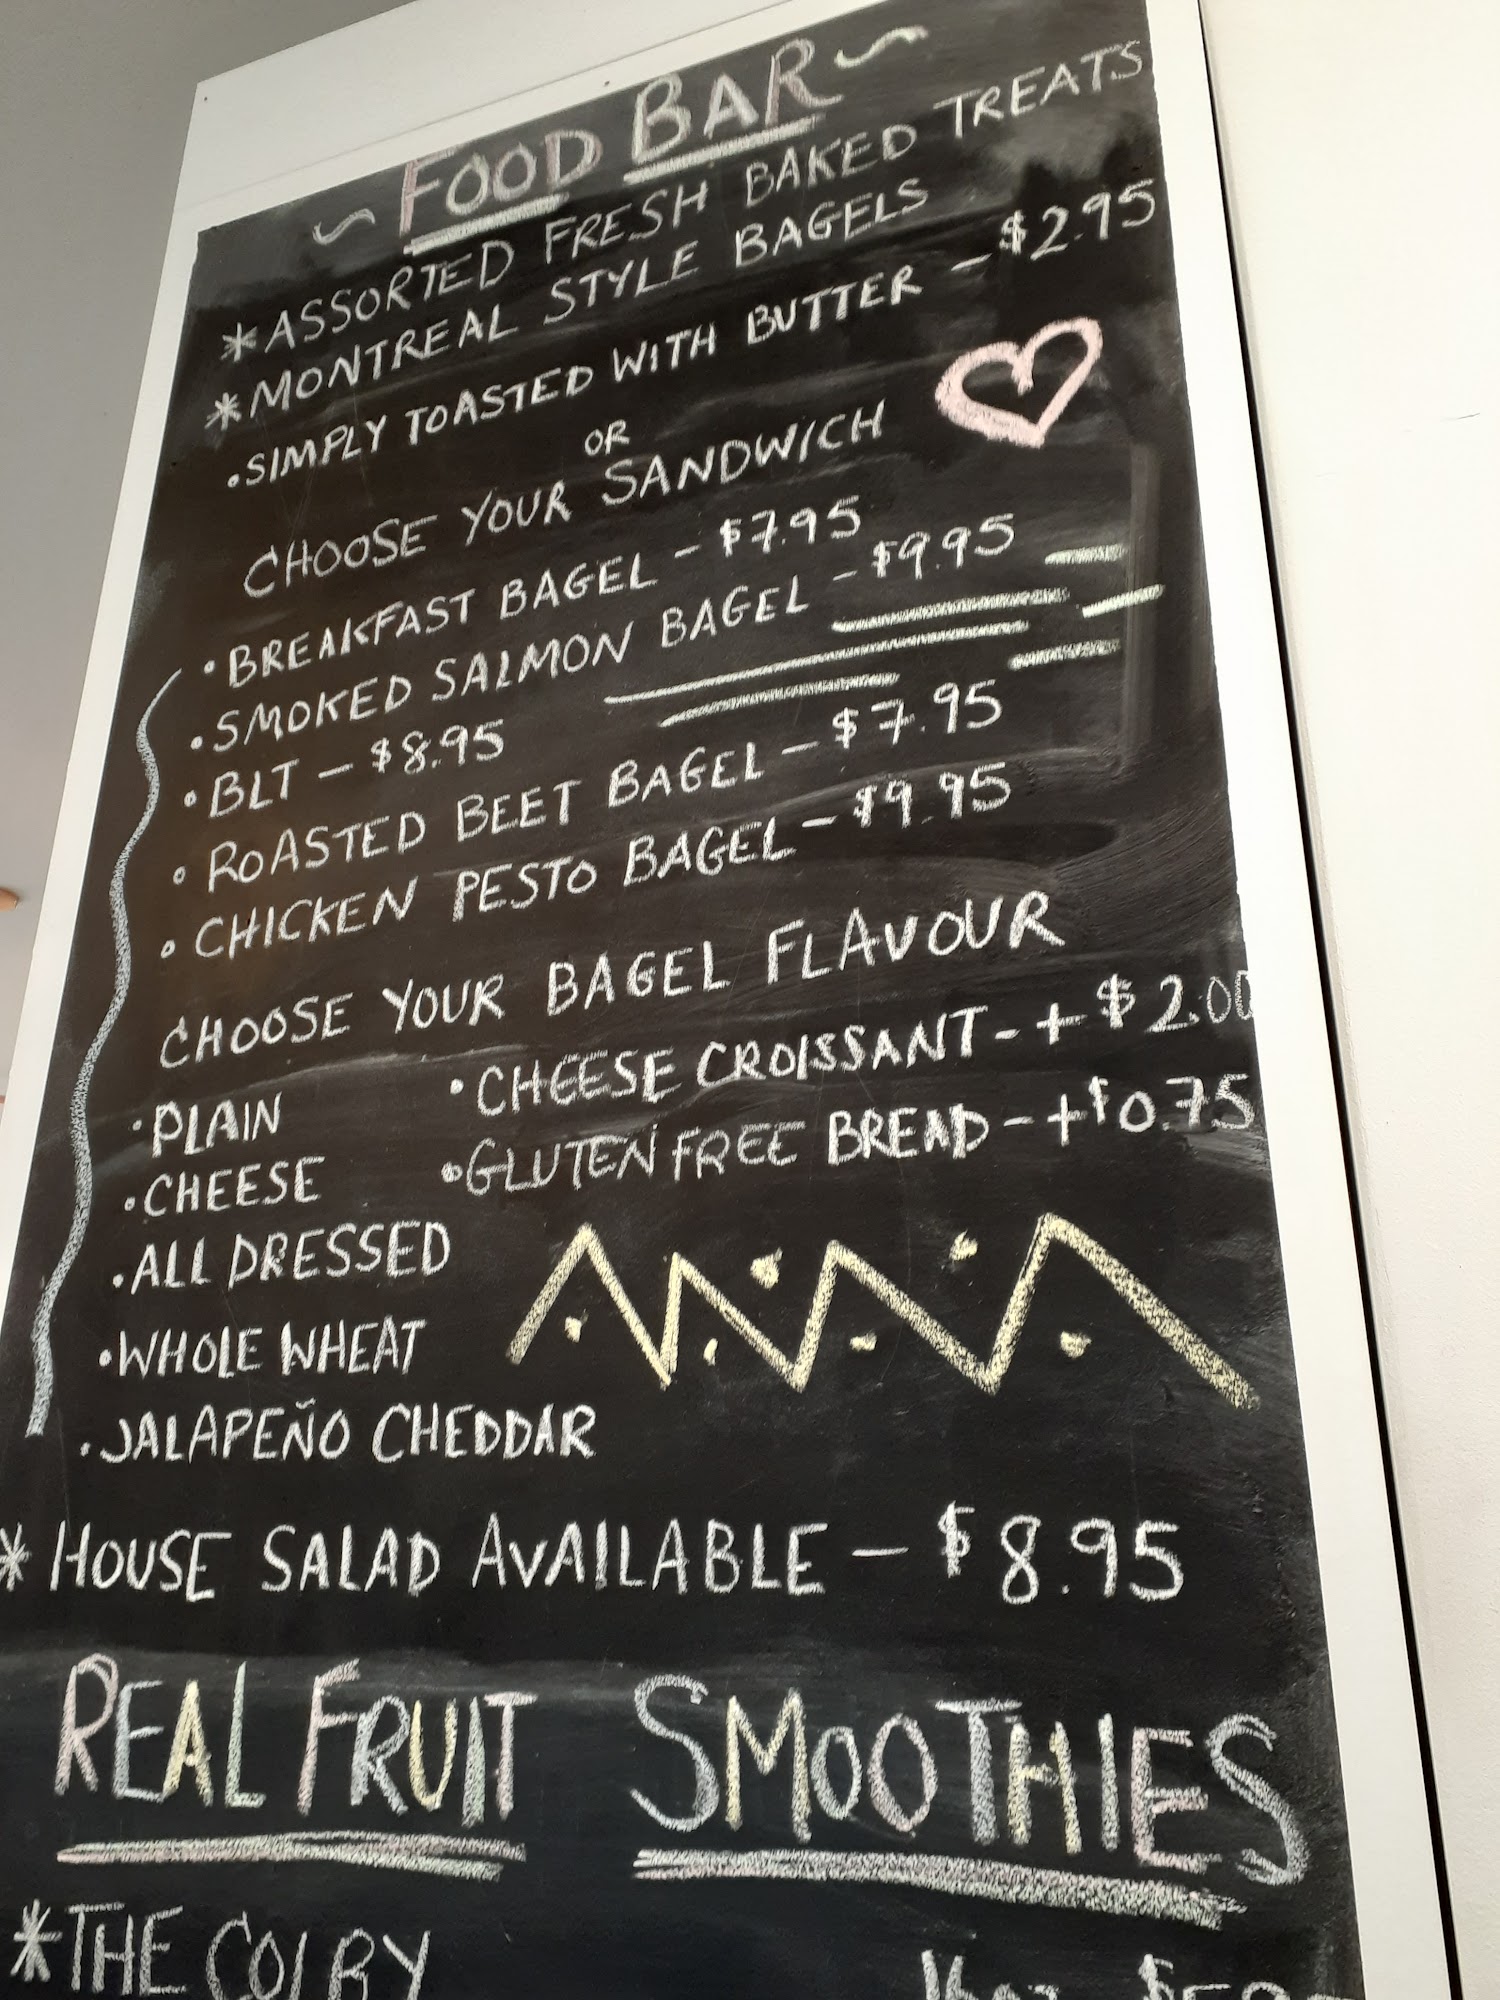 ~ FOOD BAR ~
*ASSORTED FRESH BAKED TREATS
*MONTREAL STYLE BAGELS
•SIMPLY TOASTED WITH BUTTER - $2.95
OR
CHOOSE YOUR SANDWICH
•BREAKFAST BAGEL - $7.95
•SMOKED SALMON BAGEL - $9.95
•BLT - $8.95
•ROASTED BEET BAGEL - $7.95
•CHICKEN PESTO BAGEL - $9.95
CHOOSE YOUR BAGEL FLAVOUR
•PLAIN
•CHEESE
•ALL DRESSED
•WHOLE WHEAT
•JALAPEÑO CHEDDAR
•CHEESE CROISSANT - + $2.00
•GLUTEN FREE BREAD - + $0.75
* HOUSE SALAD AVAILABLE - $8.95
REAL FRUIT SMOOTHIES
*THE COLBY